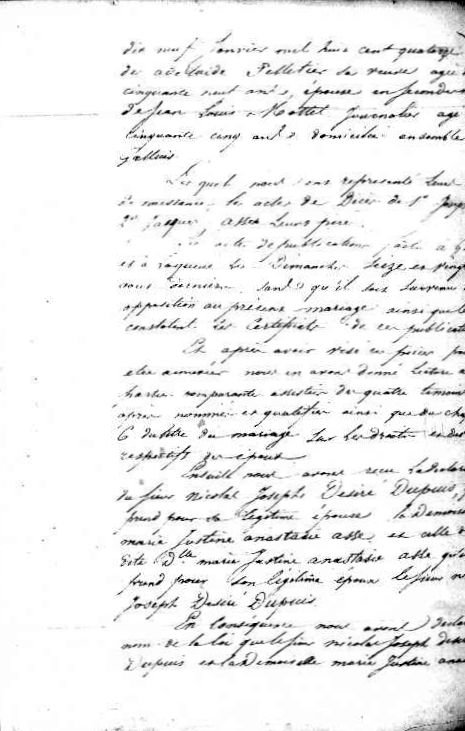 dix neuf Janvier mil huit cent quatorze
de adelaide Pelletier sa veuve agée
cinquante neuf ans, épouse en secondes
de Jean Louis Mottet Journalier agé
cinquante cinq ans domicilié ensemble
Galluis
Les quels nous ont représenté Leurs
de naissance, les actes de Décès de 1° Josep
2° Jacques asse Leurs père
Les actes de publications faite a G
et à les Dimanches Seize et Vingt
mars dernier sans qu'il soit survenu
opposition au présent mariage ainsi que le
constatent les Certificats de ces publicati
Et après avoir visé ces pièces pour
être annexées nous en avons donné lecture a
parties comparantes assistées de quatre temoins
après nommés et qualifiés ainsi que du cha
6 du titre du mariage sur les droits et de
respectifs des époux
Ensuite nous avons reçu la declara
du sieur Nicolas Joseph Desiré Dupuis,
prend pour sa legitime épouse la Demois
marie Justine anastasie asse et celle d
dite Dlle marie Justine anastasie asse qu'
prend pour son légitime époux le sieur n
Joseph Desiré Dupuis.
En Consequence nous avons declar
nom de la loi que le sieur nicolas Joseph desi
Dupuis et la Demoiselle marie Justine anas